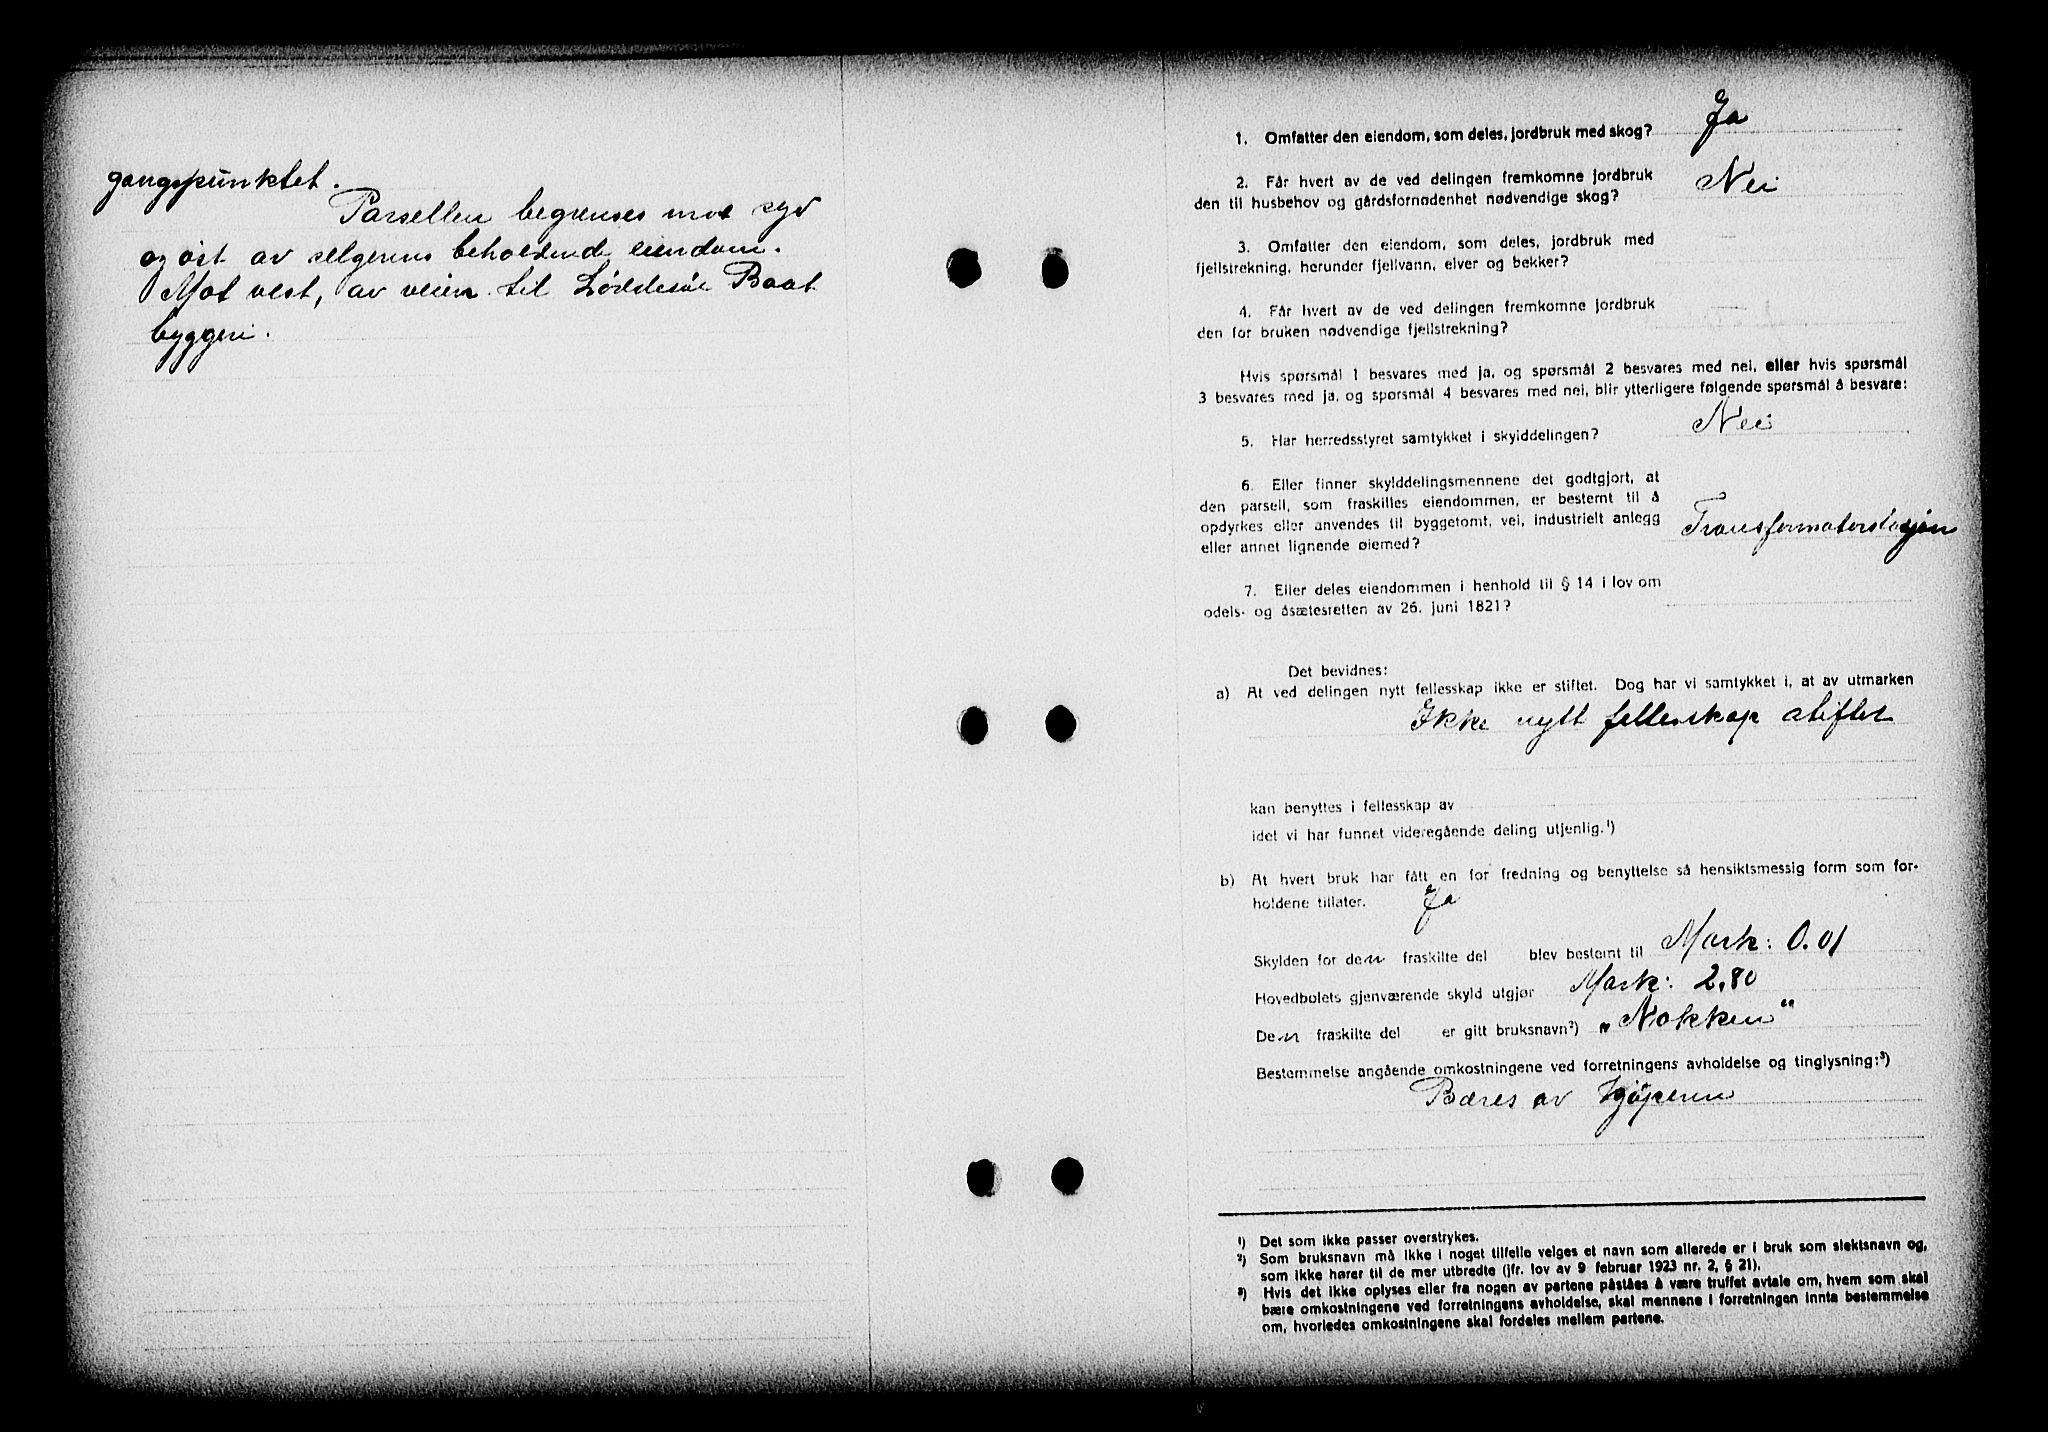 gangspunktet.
Parsellen begrenses mot syd
og øst av selgerens beholdende eiendom.
Mot vest, av veien til Baat
byggeri.
1. Omfatter den eiendom, som deles, jordbruk med skog? Ja
2. Får hvert av de ved delingen fremkomne jordbruk Nei
den til husbehov og gårdsfornødenhet nødvendige skog?
3. Omfatter den eiendom, som deles, jordbruk med —
fjellstrekning, herunder fjellvann, elver og bekker?
4. Får hvert av de ved delingen fremkomne jordbruk —
den for bruken nødvendige fjellstrekning?
Hvis spørsmål 1 besvares med ja, og spørsmål 2 besvares med nei, eller hvis spørsmål
3 besvares med ja, og spørsmål 4 besvares med nei, blir ytterligere følgende spørsmål å besvare:
5. Har herredsstyret samtykket i skylddelingen? Nei
6. Eller finner skylddelingsmennene det godtgjort, at
den parsell, som fraskilles eiendommen, er bestemt til å
opdyrkes eller anvendes til byggetomt, vei, industrielt anlegg Transformatorstasjon
eller annet lignende øiemed?
7. Eller deles eiendommen i henhold til § 14 i lov om
odels- og åsætesretten av 26. juni 1821?
Det bevidnes:
a) At ved delingen nytt fellesskap ikke er stiftet. Dog har vi samtykket i, at av utmarken
Ikke nytt fellesskap stiftet
kan benyttes i fellesskap av
idet vi har funnet videregående deling utjenlig.¹)
b) At hvert bruk har fått en for fredning og benyttelse så hensiktsmessig form som for-
holdene tillater. Ja
Skylden for den fraskilte del blev bestemt til Mark: 0.01
Hovedbølets gjenværende skyld utgjør Mark: 2,80
Den fraskilte del er gitt bruksnavn²) „Nokken“
Bestemmelse angående omkostningene ved forretningens avholdelse og tinglysning:³)
Bæres av kjøperen
¹) Det som ikke passer overstrykes.
²) Som bruksnavn må ikke i noget tilfelle velges et navn som allerede er i bruk som slektsnavn og,
som ikke hører til de mer utbredte (jfr. lov av 9 februar 1923 nr. 2, § 21).
³) Hvis det ikke oplyses eller fra nogen av partene påståes å være truffet avtale om, hvem som skal
bære omkostningene ved forretningens avholdelse, skal mennene i forretningen innta bestemmelse
om, hvorledes omkostningene skal fordeles mellem partene.